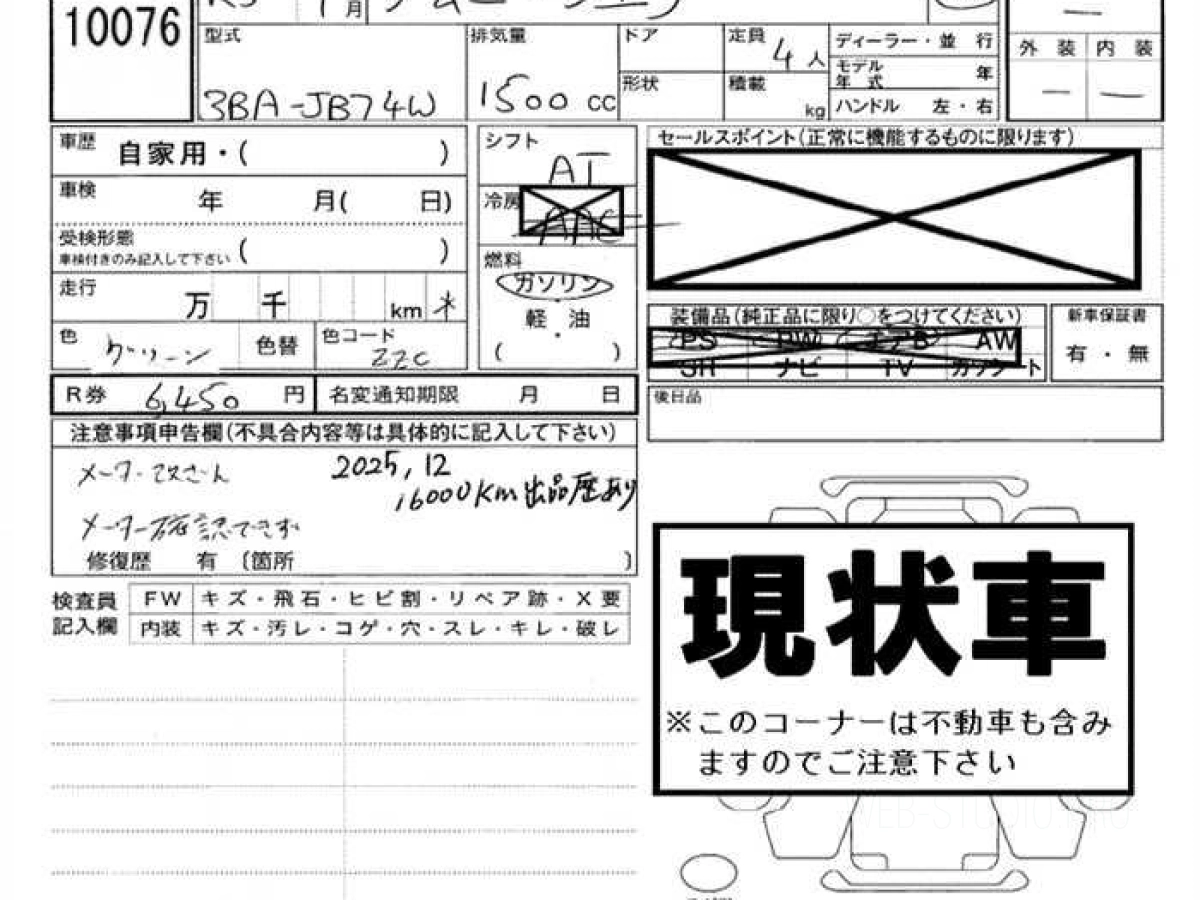 10076
月
型式
3BA-JB74W
排気量
1500 cc
ドア
形状
定員
4人
積載
kg
ディーラー・並 行
モデル年式 年
ハンドル 左・右
外 装
内 装
車歴
自家用・( )
車検
年 月( 日)
受検形態
車検付きのみ記入して下さい
( )
走行
万 千 km *
色
グリーン
色替
色コード
ZZC
シフト
AT
冷房
AAC
燃料
ガソリン
・
軽 油
・
( )
セールスポイント(正常に機能するものに限ります)
装備品(純正品に限り○をつけてください)
PS PW エアB AW
SR ナビ TV カワシート
新車保証書
有・無
R券 6,450 円
名変通知期限 月 日
後日品
注意事項申告欄(不具合内容等は具体的に記入して下さい)
メーター改ざん
2025,12
16000Km出品歴あり
メーター確認できず
修復歴 有 〔箇所 〕
検査員記入欄
FW キズ・飛石・ヒビ割・リペア跡・X要
内装 キズ・汚レ・コゲ・穴・スレ・キレ・破レ
現状車
※このコーナーは不動車も含み
ますのでご注意下さい